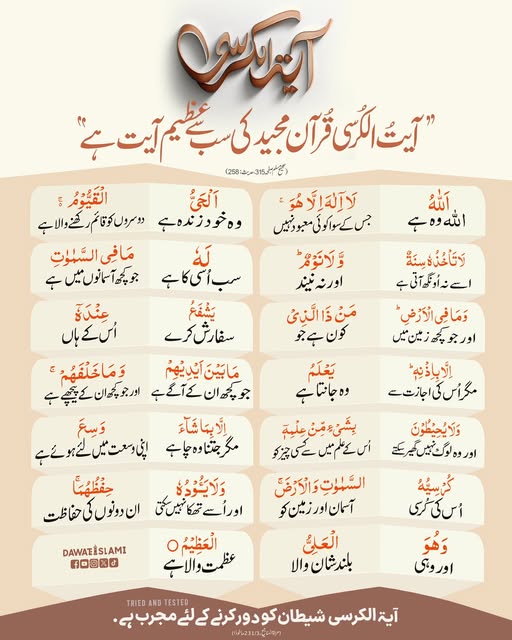 آیۃ الکرسی
”آیتُ الکُرسی قُرآن مجید کی سب سے عظیم آیت ہے“
اَللّٰهُ لَاۤ اِلٰهَ اِلَّا هُوَ ۚ اَلْحَیُّ الْقَیُّوْمُ ۚ۬
اللّٰہ وہ ہے جس کے سوا کوئی معبود نہیں وہ خود زندہ ہے دوسروں کو قائم رکھنے والا ہے
لَا تَاْخُذُهٗ سِنَةٌ وَّ لَا نَوْمٌ ؕ لَهٗ مَا فِی السَّمٰوٰتِ
اسے نہ اُونگھ آتی ہے اور نہ نیند سب اُسی کا ہے جو کچھ آسمانوں میں ہے
وَمَا فِی الْاَرْضِ ؕ مَنْ ذَا الَّذِیْ یَشْفَعُ عِنْدَهٗۤ
اور جو کچھ زمین میں کون ہے جو سفارش کرے اُس کے ہاں
اِلَّا بِاِذْنِهٖ ؕ یَعْلَمُ مَا بَیْنَ اَیْدِیْهِمْ وَمَا خَلْفَهُمْ ۚ
مگر اُس کی اجازت سے وہ جانتا ہے جو کچھ ان کے آگے ہے اور جو کچھ ان کے پیچھے ہے
وَلَا یُحِیْطُوْنَ بِشَیْءٍ مِّنْ عِلْمِهٖۤ اِلَّا بِمَا شَآءَ ۚ وَسِعَ
اور وہ لوگ نہیں گھیر سکتے اُس کے علم میں سے کسی چیز کو مگر جتنا وہ چاہے اپنی وسعت میں لئے ہوئے ہے
کُرْسِیُّهُ السَّمٰوٰتِ وَالْاَرْضَ ۚ وَلَا یَـُٔوْدُهٗ حِفْظُهُمَا ۚ
اُس کی کُرسی آسمان اور زمین کو اور اُسے تھکا نہیں سکتی ان دونوں کی حفاظت
وَهُوَ الْعَلِیُّ الْعَظِیْمُ ○
اور وہی بلند شان والا عظمت والا ہے
DAWATEISLAMI
TRIED AND TESTED
آیۃ الکرسی شیطان کو دور کرنے کے لئے مجرب ہے۔